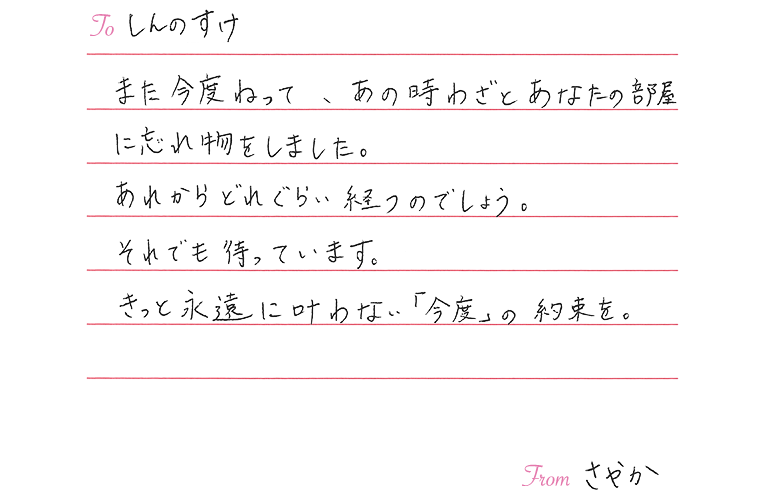 To しんのすけ
また今度ねって、あの時わざとあなたの部屋
に忘れ物をしました。
あれからどれぐらい経つのでしょう。
それでも待っています。
きっと永遠に叶わない「今度」の約束を。
From さやか